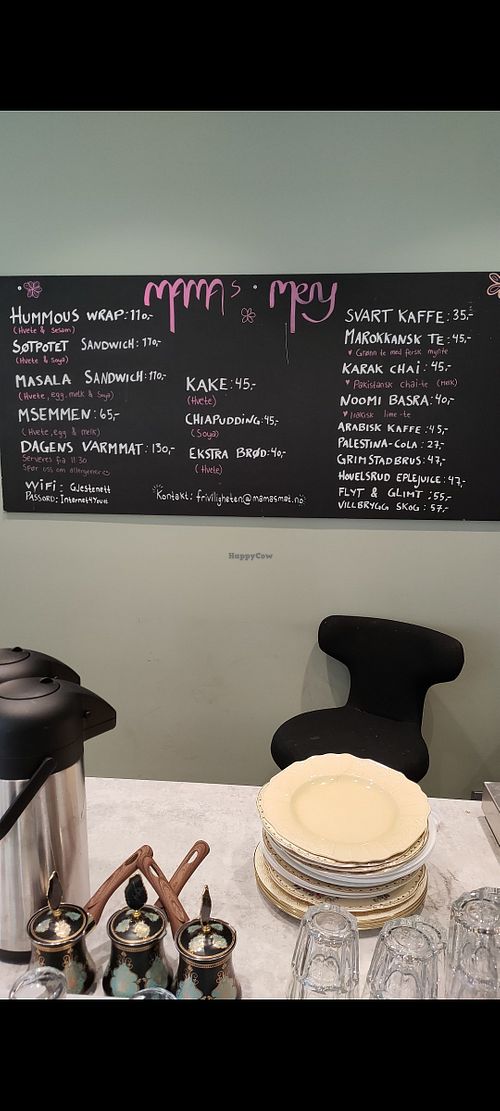 MAMAs · Meny
HUMMOUS WRAP: 110,-
(Hvete & sesam)
SØTPOTET SANDWICH: 110,-
(Hvete & soya)
MASALA SANDWICH: 110,-
(Hvete, egg, melk & Soya)
MSEMMEN: 65,-
(Hvete, egg & melk)
DAGENS VARMMAT: 130,-
Serveres fra 11:30
Spør oss om allergener
WIFI: Gjestenett
PASSORD: Internet4You!
KAKE: 45,-
(Hvete)
CHIAPUDDING: 45,-
(Soya)
EKSTRA BRØD: 40,-
(Hvete)
Kontakt: frivilligheten@mamasmat.no
SVART KAFFE: 35,-
MAROKKANSK TE: 45,-
Grønn te med fersk mynte
KARAK CHAI: 45,-
Pakistansk chai-te (melk)
NOOMI BASRA: 40,-
Irakisk lime-te
ARABISK KAFFE: 45,-
PALESTINA-COLA: 27,-
GRIMSTADBRUS: 47,-
HOVELSRUD EPLEJUICE: 47,-
FLYT & GLIMT: 55,-
VILLBRYGG SKOG: 57,-
HappyCow